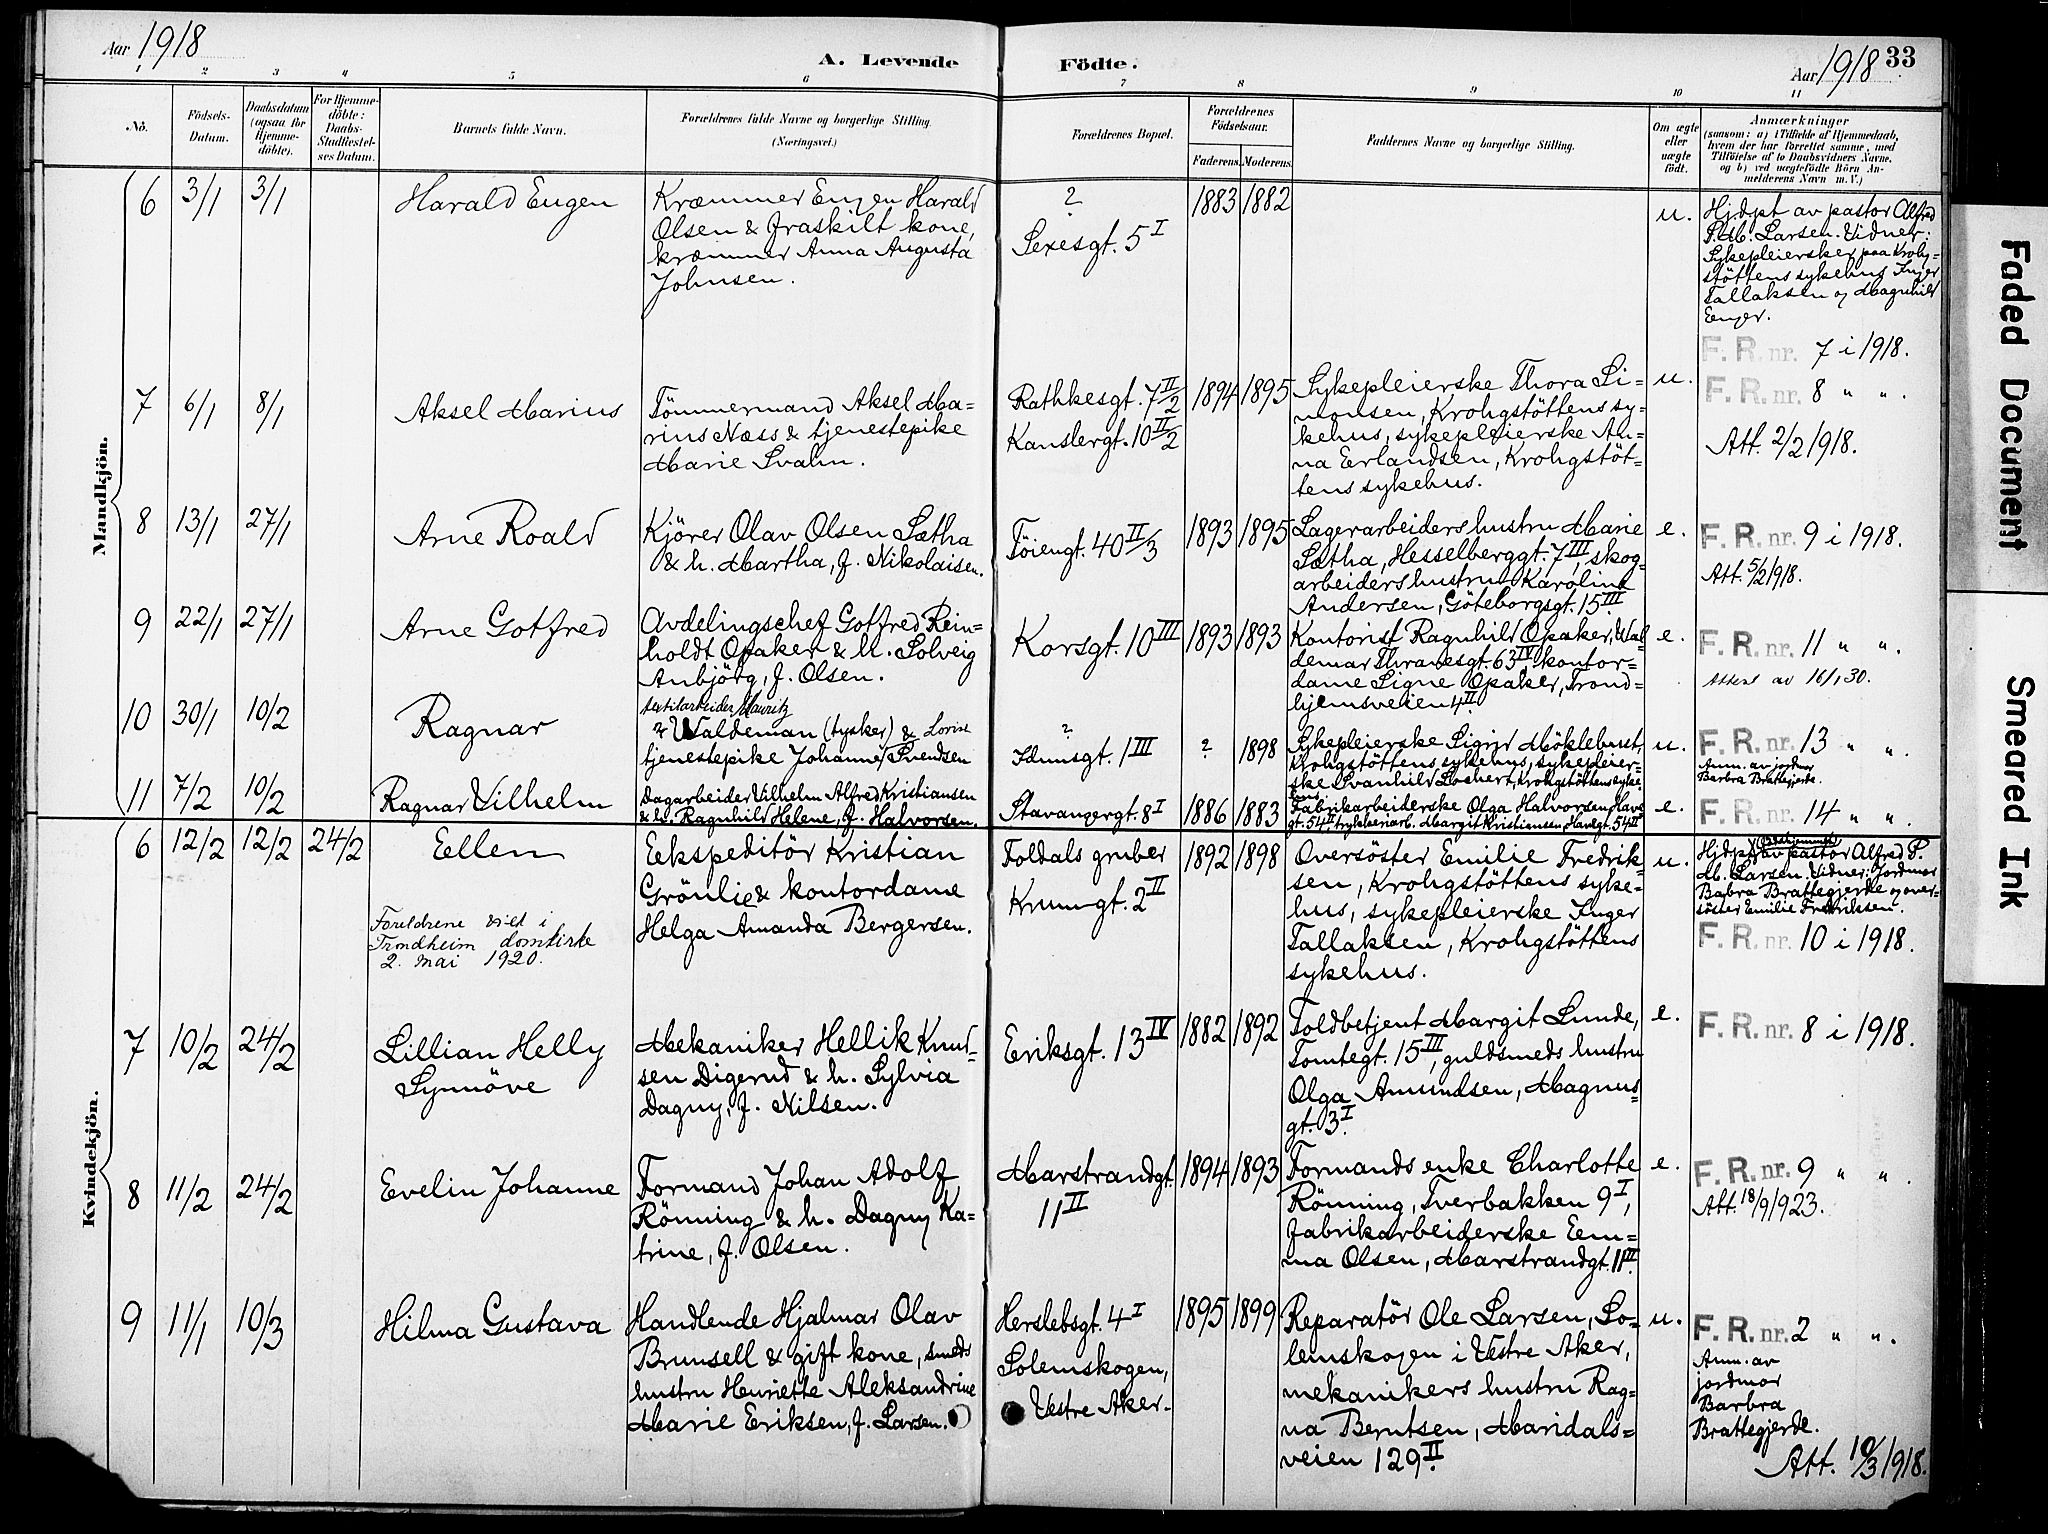 Aar 1918
A. Levende Födte.
Aar 1918 33
1 2 3 4 5 6 7 8 9 10 11
No.
Födsels-
Datum.
Daabsdatum
(ogsaa for
Hjemme-
döbte).
For Hjemme-
döbte:
Daabs-
Stadfæstel-
ses Datum.
Barnets fulde Navn.
Forældrenes fulde Navne og borgerlige Stilling.
(Næringsvei.)
Forældrenes Bopæl.
Forældrenes
Födselsaar.
Faderens. Moderens.
Faddernes Navne og borgerlige Stilling.
Om ægte
eller
uægte
födt.
Anmærkninger
(saasom: a) i Tilfælde af Hjemmedaab,
hvem der har forrettet samme, med
Tilföielse af to Daabsvidners Navne,
og b) ved uægtefödte Börn An-
melderens Navn m. V.)
Mandkjön.
6 3/1 3/1
Harald Eugen
Kræmmer Eugen Harald
Olsen & fraskilt kone,
kræmmer Anna Augusta
Johnsen.
?
Sexesgt. 5 I
1883 1882
u.
Hjdpt av pastor Alfred
P. M. Larsen. Vidner:
Sykepleiersker paa Krohg=
stöttens sykehus Inger
Tallaksen og Magnhild
Enger.
F. R. nr. 7 i 1918.
7 6/1 8/1
Aksel Marius
Tömmermand Aksel Ma=
rius Næss & tjenestepike
Marie Svahn.
Rathkesgt. 7 II/2
Kanslergt. 10 II/2
1894 1895
Sykepleierske Thora Si=
monsen, Krohgstöttens sy=
kehus, sykepleierske An=
na Erlandsen, Krohgstöt=
tens sykehus.
u.
F. R. nr. 8 " " .
Att. 2/2 1918.
8 13/1 27/1
Arne Roald
Kjörer Olav Olsen Sætha
& h. Martha, f. Nikolaisen.
Töiengt. 40 II/3
1893 1895
Lagerarbeiders hustru Marie
Sætha, Hesselberggt. 7 III, skog=
arbeiders hustru Karoline
Andersen, Göteborgsgt. 15 III.
e.
F. R. nr. 9 i 1918.
Att. 5/2 1918.
9 22/1 27/1
Arne Gotfred
Avdelingschef Gotfred Rein=
holdt Opaker & h. Solveig
Anbjörg, f. Olsen.
Korsgt. 10 III
1893 1893
Kontorist Ragnhild Opaker, Wal
demar Thranesgt. 63 IV, kontor=
dame Signe Opaker, Trond=
hjemsveien 4 II.
e.
F. R. nr. 11 " " .
Attest av 16/1 30.
10 30/1 10/2
Ragnar
textilarbeider Mauritz
? Waldeman (tysker) & Lovise
tjenestepike Johanne Svendsen
?
Idunsgt. 1 III
? 1898
Sykepleierske Sigrid Möklebust,
Krohgstöttens sykehus, sykepleier=
ske Svanhild Löchert, Krohgstöttens syke=
hus.
u.
F. R. nr. 13 " " .
Anm. av jordmor
Barbra Brattegjerde.
11 7/2 10/2
Ragnar Vilhelm
Dagarbeider Vilhelm Alfred Kristiansen
& h. Ragnhild Helene, f. Halvorsen.
Stavangergt. 8 I
1886 1883
Fabrikarbeiderske Olga Halvorsen, Have
gt. 54 II, trykkeriarb. Margit Kristiansen, Havegt. 54 II
e.
F. R. nr. 14 " " .
Kvindekjön.
6 12/2 12/2 24/2
Ellen
Foreldrene viet i
Trondheim domkirke
2. mai 1920.
Ekspeditör Kristian
Grönlie & kontordame
Helga Amanda Bergersen.
Foldals gruber
Krumgt. 2 II
1892 1898
Oversöster Emilie Fredrik
sen, Krohgstöttens syke=
hus, sykepleierske Inger
Tallaksen, Krohgstöttens
sykehus.
u.
Hjdpt av pastor Alfred P.
M. Larsen. Vidner: Jordmor
Babra Brattegjerde og over=
söster Emilie Fredriksen.
F. R. nr. 10 i 1918.
7 10/2 24/2
Lillian Helly
Synnöve
Mekaniker Hellik Knud=
sen Digerud & h. Sylvia
Dagny, f. Nilsen.
Eriksgt. 13 IV
1882 1892
Toldbetjent Margit Lunde,
Tomtegt. 15 III, guldsmeds hustru
Olga Amundsen, Magnus=
gt. 3 I.
e.
F. R. nr. 8 i 1918.
8 11/2 24/2
Evelin Johanne
Formand Johan Adolf
Rönning & h. Dagny Ka=
trine, f. Olsen.
Marstrandgt.
11 II
1894 1893
Formands enke Charlotte
Rönning, Tverbakken 9 I,
fabrikarbeiderske Em=
ma Olsen, Marstrandgt. 11 II.
e.
F. R. nr. 9 " " .
Att. 18/9 1923.
9 11/1 10/3
Hilma Gustava
Handlende Hjalmar Olav
Brunsell & gift kone, smeds
hustru Henriette Aleksandrine
Marie Eriksen, f. Larsen.
Herslebsgt. 4 I
Solemskogen,
Vestre Aker.
1895 1899
Reparatör Ole Larsen, So=
lemskogen i Vestre Aker,
mekanikers hustru Rag=
na Berntsen, Maridals=
veien 129 II.
u.
F. R. nr. 2 " " .
Anm. av
jordmor
Barbra
Brattegjerde.
Att. 10/3 1918.
Faded Document
Smeared Ink